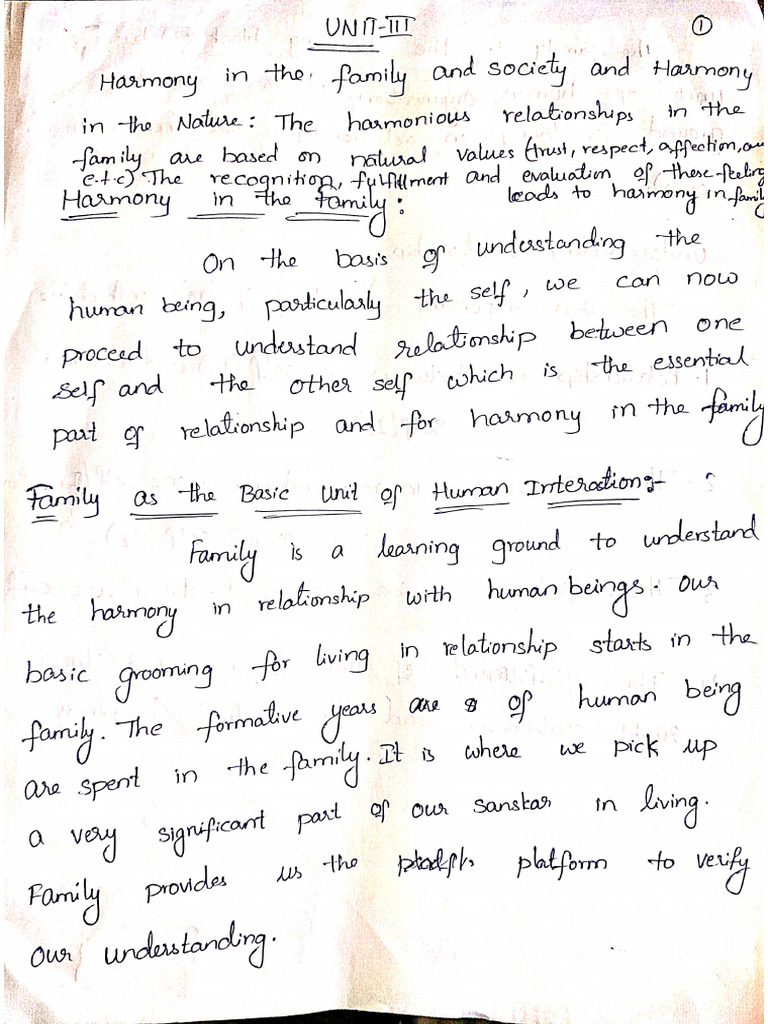 UNIT-III
1
Harmony in the family and society and Harmony
in the Nature: The harmonious relationships in the
family are based on natural values (trust, respect, affection,
e.t.c) The recognition, fulfillment and evaluation of these feeling
leads to harmony in family
Harmony in the Family:
On the basis of understanding the
human being, particularly the self, we can now
proceed to understand relationship between one
self and the other self which is the essential
part of relationship and for harmony in the family
Family as the Basic Unit of Human Interaction:-
Family is a learning ground to understand
the harmony in relationship with human beings. Our
basic grooming for living in relationship starts in the
family. The formative years are of human being
are spent in the family. It is where we pick up
a very significant part of our sanskar in living.
Family provides us the platform to verify
our understanding.